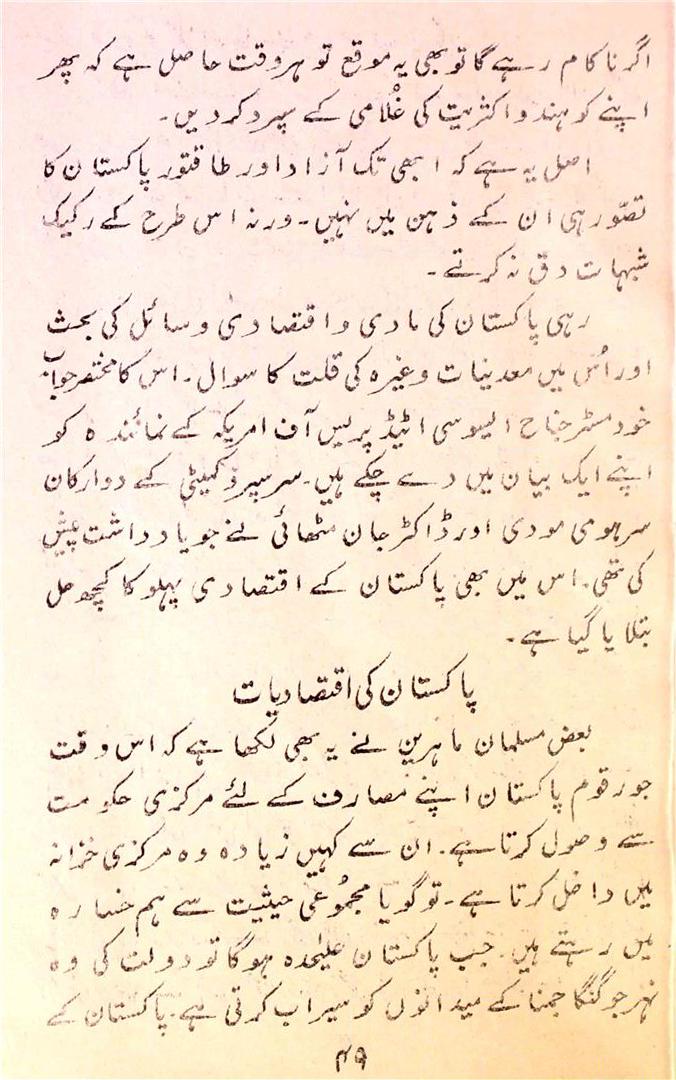 اگر ناکام رہے گا تو بھی یہ موقع تو ہر وقت حاصل ہے کہ پھر
اپنے کو ہندو اکثریت کی غلامی کے سپرد کر دیں۔
اصل یہ ہے کہ ابھی تک آزاد اور طاقتور پاکستان کا
تصوّر ہی ان کے ذہن میں نہیں۔ ورنہ اس طرح کے رکیک
شبہات دق نہ کرتے۔
رہی پاکستان کی مادی و اقتصادی وسائل کی بحث
اور اُس میں معدنیات وغیرہ کی قلت کا سوال۔ اس کا مختصر جواب
خود مسٹر جناح ایسوسی ایٹیڈ پریس آف امریکہ کے نمائندہ کو
اپنے ایک بیان میں دے چکے ہیں۔ سر سپرو کمیٹی کے دو ارکان
سر ہومی مودی اور ڈاکٹر جان متھائی نے جو یادداشت پیش
کی تھی۔ اس میں بھی پاکستان کے اقتصادی پہلو کا کچھ حل
بتلایا گیا ہے۔
پاکستان کی اقتصادیات
بعض مسلمان ماہرین نے یہ بھی لکھا ہے کہ اس وقت
جو رقوم پاکستان اپنے مصارف کے لئے مرکزی حکومت
سے وصول کرتا ہے۔ ان سے کہیں زیادہ وہ مرکزی خزانہ
میں داخل کرتا ہے۔ تو گویا مجموُعی حیثیت سے ہم خسارہ
میں رہتے ہیں۔ جب پاکستان علیٰحدہ ہوگا تو دولت کی وہ
نہر جو گنگا جمنا کے میدانوں کو سیراب کرتی ہے۔ پاکستان کے
۴۹